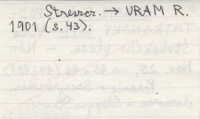 Stresser. → URAM R.
1901 (s. 43).